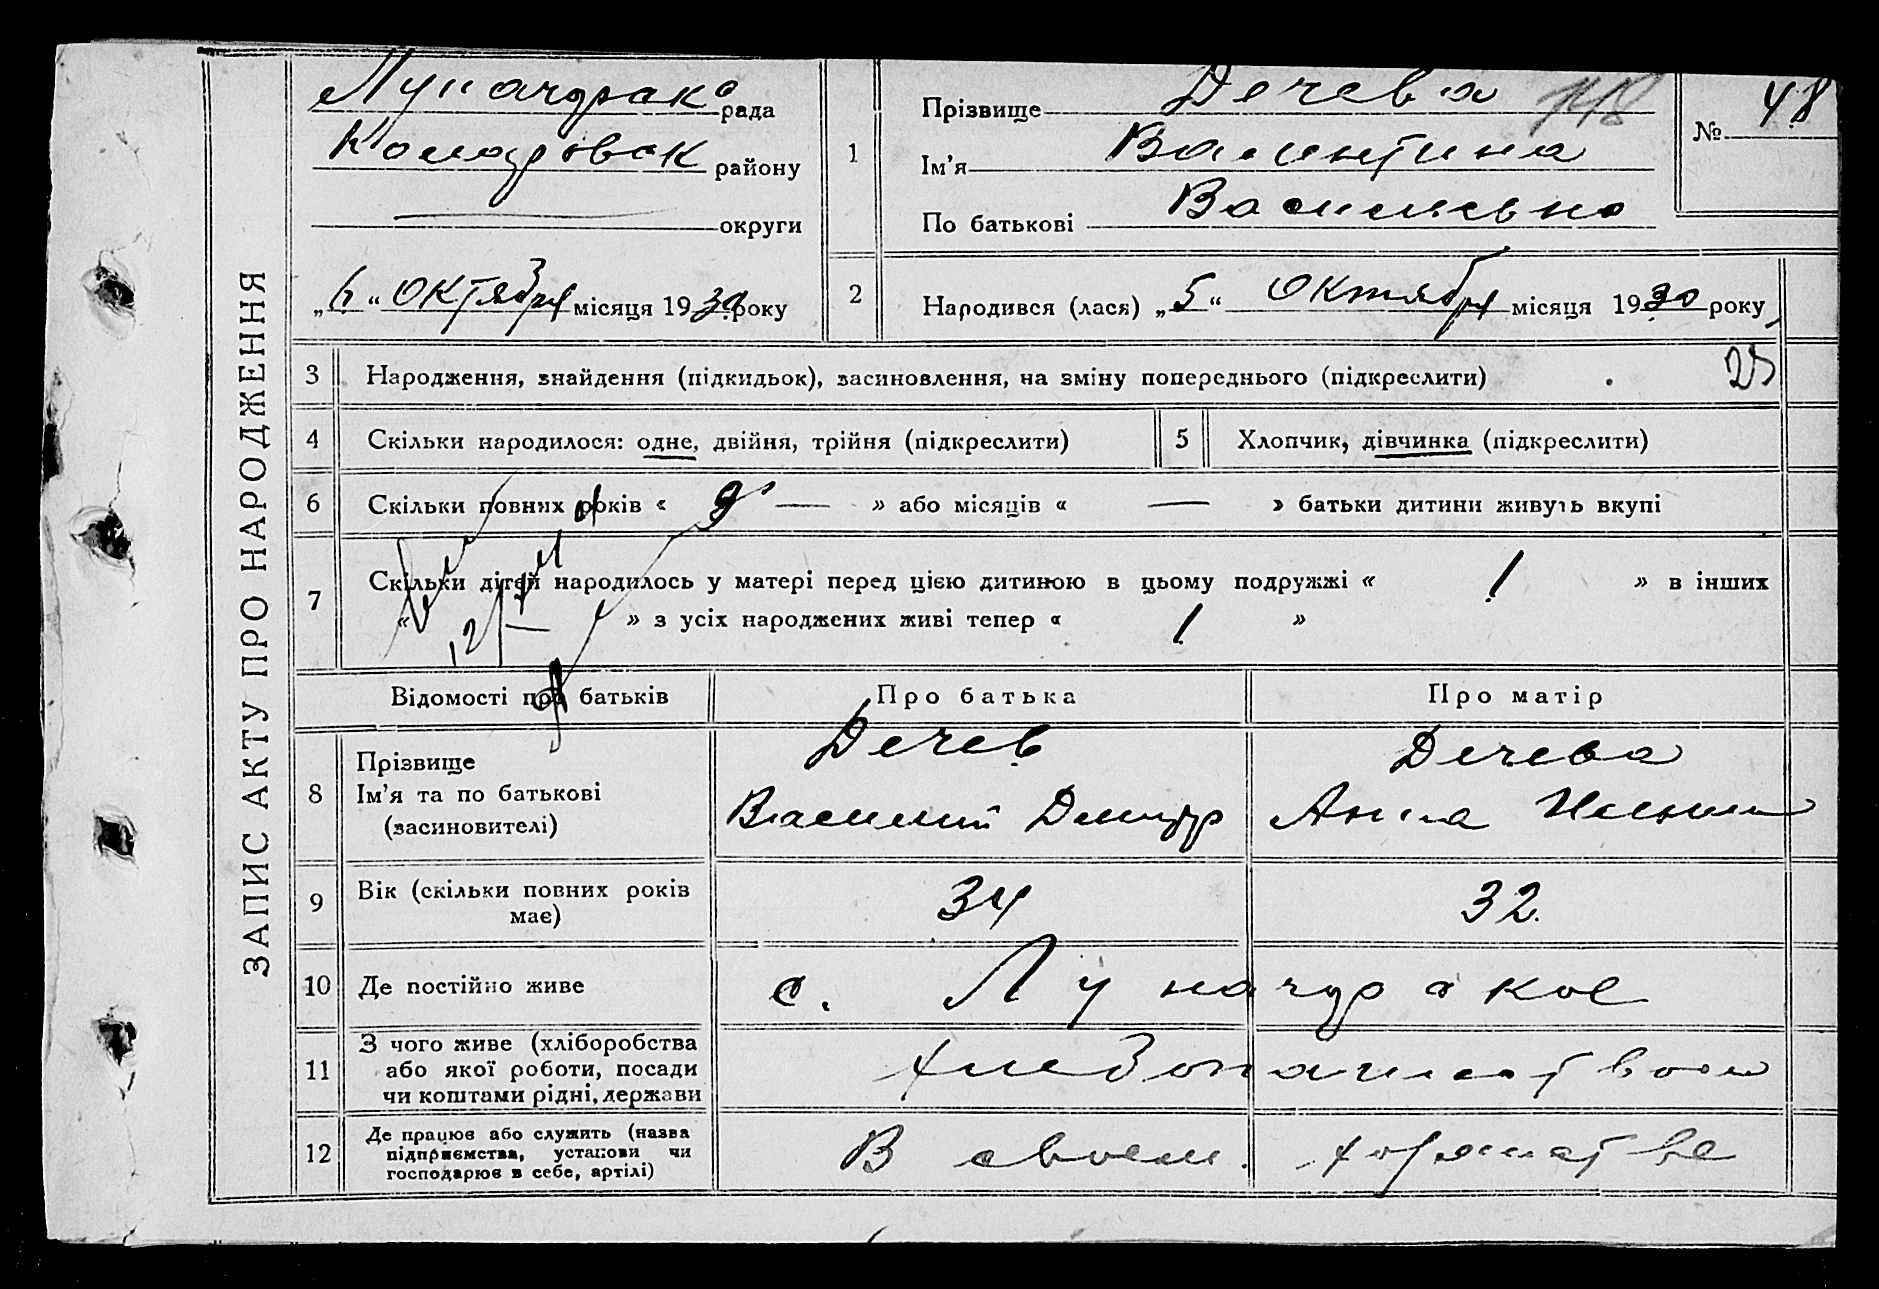 ЗАПИС АКТУ ПРО НАРОДЖЕННЯ
Луначарск рада
района
округи
„6“ октября місяця 1930 року
1
Прізвище Дечева 148
Ім’я Валентина
По батькові Васильевна
№ 48
2
Народився (лася) „5“ Октября місяця 1930 року
3 Народження, знайдення (підкидьок), засиновлення, на зміну попереднього (підкреслити) 25
4 Скільки народилося: одне, двійня, трійня (підкреслити)
5 Хлопчик, дівчинка (підкреслити)
6 Скільки повних років « 9 — » або місяців « — » батьки дитини живуть вкупі
7 Скільки дітей народилось у матері перед цією дитиною в цьому подружжі « 1 » в інших
« — » з усіх народжених живі тепер « 1 »
Відомості про батьків
Про батька
Про матір
8
Прізвище
Ім’я та по батькові
(засиновителі)
Дечев
Василий Дмитр
Дечева
Анна
9
Вік (скільки повних років
має)
34
32
10 Де постійно живе
с. Луначарское
11
З чого живе (хліборобства
або якої роботи, посади
чи коштами рідні, держави
хлебопашеством
12
Де працює або служить (назва
підприємства, установи чи
господарює в себе, артілі)
В своем хозяйстве